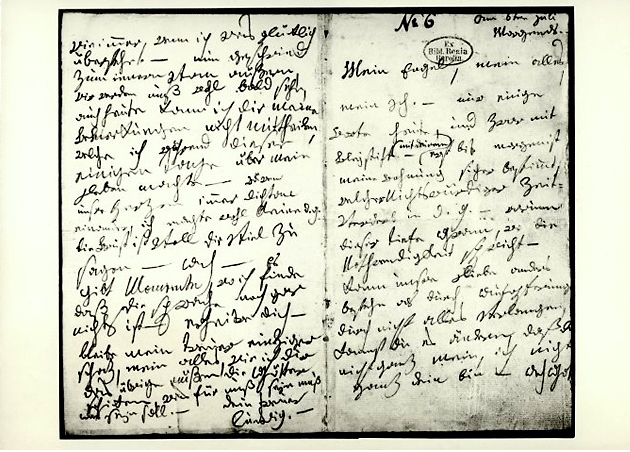 wie immer, wenn ich was glücklich
überstehe. — nun geschwind
zum innern vom aüssern
wir werden unß wohl bald sehn,
auch heute kann ich dir meine
Bemerkungen nicht mittheilen,
welche ich während dieser
einigen Tage über mein
Leben machte — wären
unsre Herzen immer dicht an
einander, ich machte wohl keine d.g.
die Brust ist voll dir viel zu
sagen — Ach — Es
gibt Momente, wo ich finde
daß die sprache noch gar
nichts ist — erheitre dich —
bleibe mein treuer einziger
schaz, mein alles, wie ich dir
das übrige müßen die Götter
schicken, was für unß seyn muß
und seyn soll. — dein treuer
ludwig. —
№ 6 am 6ten juli
Morgends. —
Ex
Bibl. Regia
Berolin.
Mein Engel, mein alles
mein Ich. — nur einige
Worte heute, und zwar mit
Bleystift — (mit deinem) erst bis morgen ist
meine Wohnung sicher bestimmt,
welcher Nichtswürdiger Zeit-
verderb in d. g. — warum
dieser tiefe Gram, wo die
Nothwendigkeit spricht —
Kann unsre Liebe anders
bestehn als durch Aufopferungen,
durch nicht alles verlangen,
kannst du es ändern, daß du
nicht ganz mein, ich nicht
ganz dein bin — Ach Gott